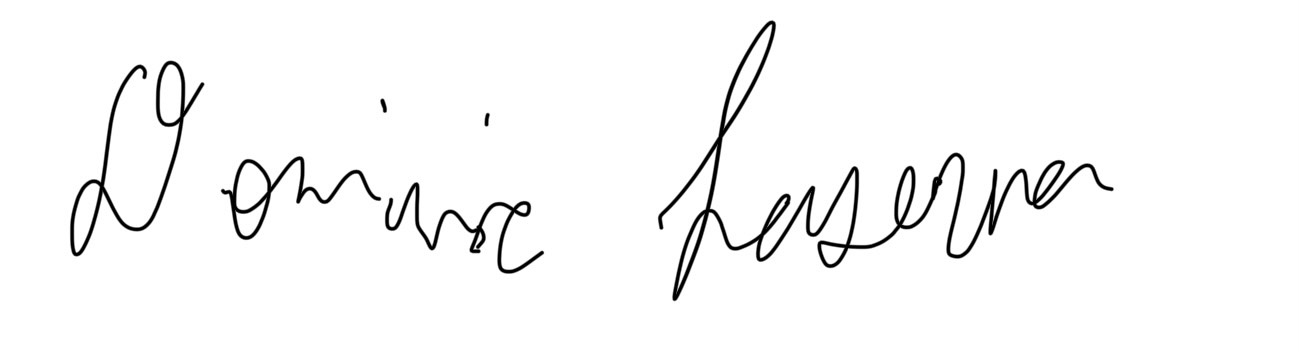 Dominic Laserna